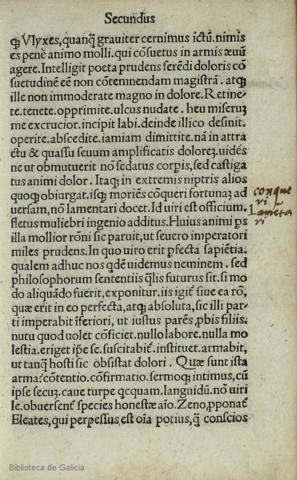 Secundus
ꝙ Vlyxes, quanꝗ̃ grauiter cernimus ictũ. nimis
es penè animo molli. qui cõsuetus in armis æuũ
agere. Intelligit poeta prudens ferẽdi doloris cõ
suetudinẽ eẽ non cõtemnendam magistrã. atꝗ
ille non immoderate magno in dolore. Retine/
te. tenete. opprimite. ulcus nudate. heu miserũ
me excrucior. incipit labi. deinde illico desinit.
operite. abscedite. iamiam dimittite. nã in attra
ctu & quassu seuum amplificatis dolorẽ. uidés
ne ut obmutuerit nõ sedatus corpis, sed castiga
tus animi dolor. Itaꝗ in extremis niptris alios
quoꝗ obiurgat. isꝗ moriẽs cõqueri fortunã ad
uersam, nõ lamentari docet. Id uiri est officium.
fletus muliebri ingenio additus. Huius animi ps
illa mollior rõni sic paruit, ut seuero imperatori
miles prudens. In quo uiro erit pfecta sapiẽtia.
qualem adhuc nos qdẽ uidemus neminem. sed
philosophorum sententiis qlis futurus sit. si mo
do aliquãdo fuerit, exponitur. iis igit siue ea rõ,
quæ erit in eo perfecta, atꝗ absoluta, sic illi par/
ti imperabit iferiori, ut iustus parẽs, pbis filiis.
nutu quod uolet cõficiet. nullo labore. nulla mo
lestia. eriget ipse se. suscitabit. instituet. armabit,
ut tanꝗ̃ hosti sic obsistat dolori. Quæ sunt ista
arma? cõtentio. cõfirmatio. sermoꝗ intimus, cũ
ipse secũ. caue turpe qcquam. languidũ. nõ uiri
le. obuersent species honestæ aĩo. Zeno, pponat
Eleates, qui perpessus est oĩa potius, ꝗ̃ conscios
conque
ri
Lamẽta
ri
Biblioteca de Galicia